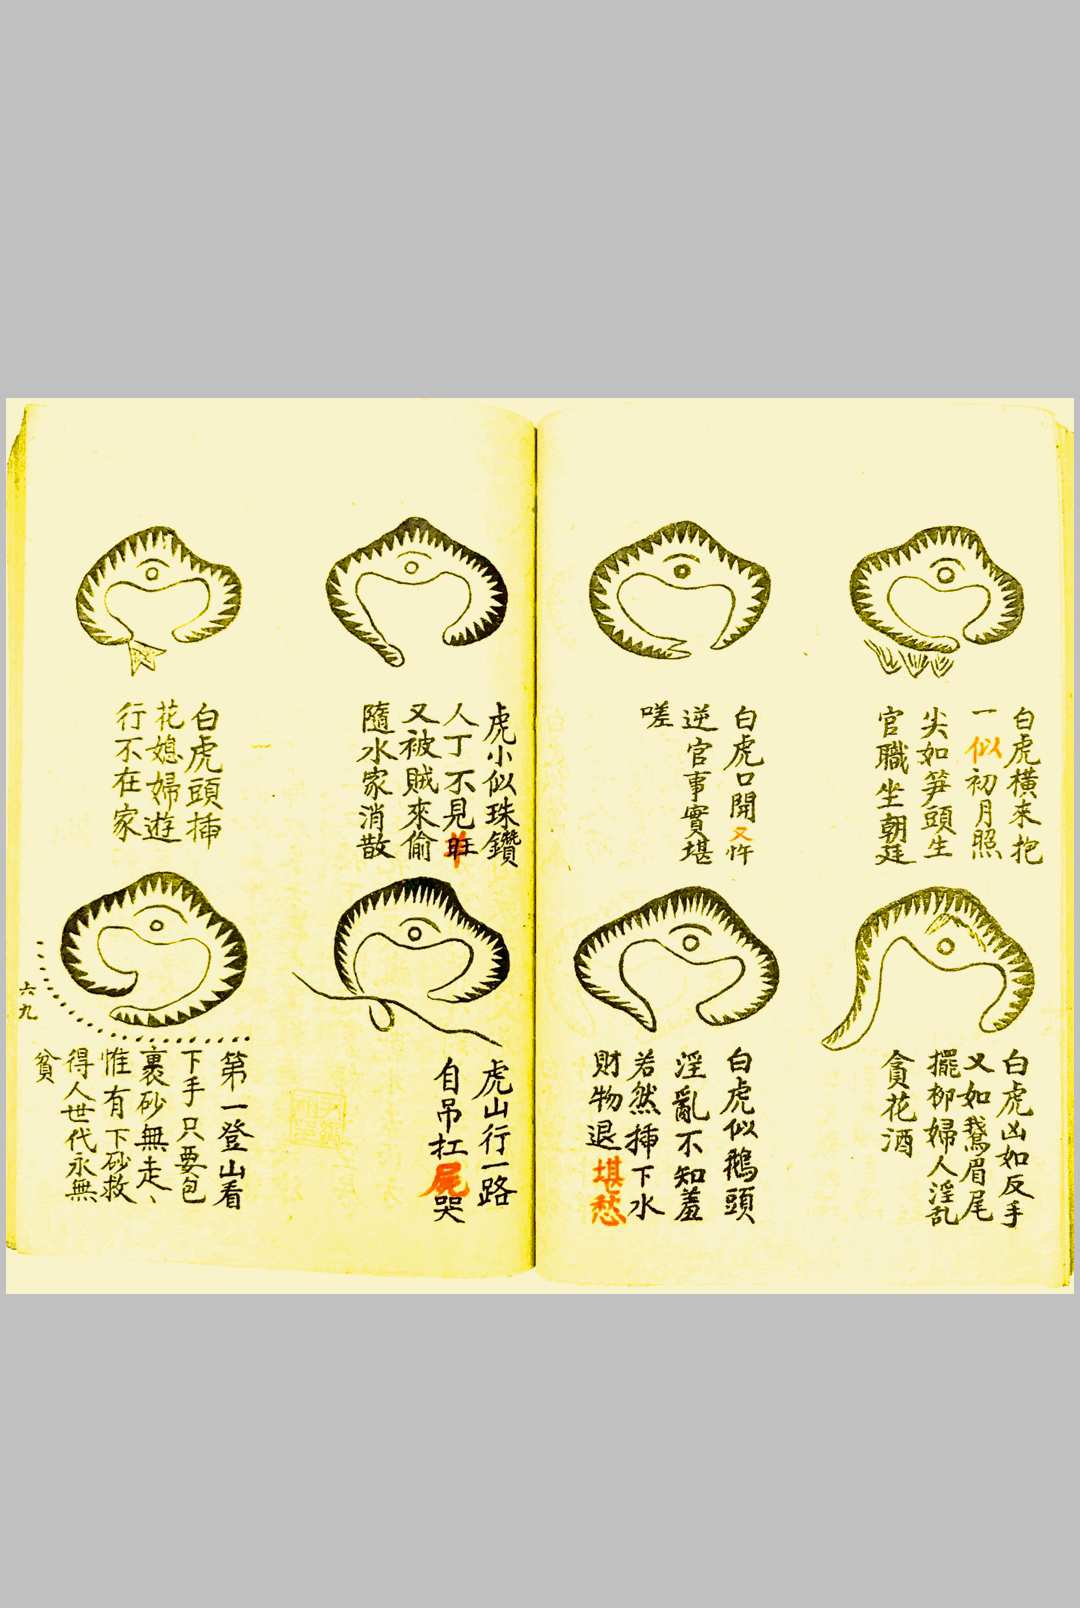 白虎橫来抱
一似初月照
尖如笋頭生
官職坐朝廷
白虎口開又忤
逆官事實堪
嗟
白虎凶如反手
又如鵞眉尾
擺柳婦人淫乱
貪花酒
白虎似鵝頭
淫亂不知羞
若然揷下水
財物退堪愁
虎小似珠鑽
人丁不見
又被賊來偷
隨水家消散
白虎頭揷
花媳婦遊
行不在家
虎山行一路
自吊扛屍哭
第一登山看
下手只要包
裹砂無走丶
惟有下砂救
得人世代永無
貧
六九